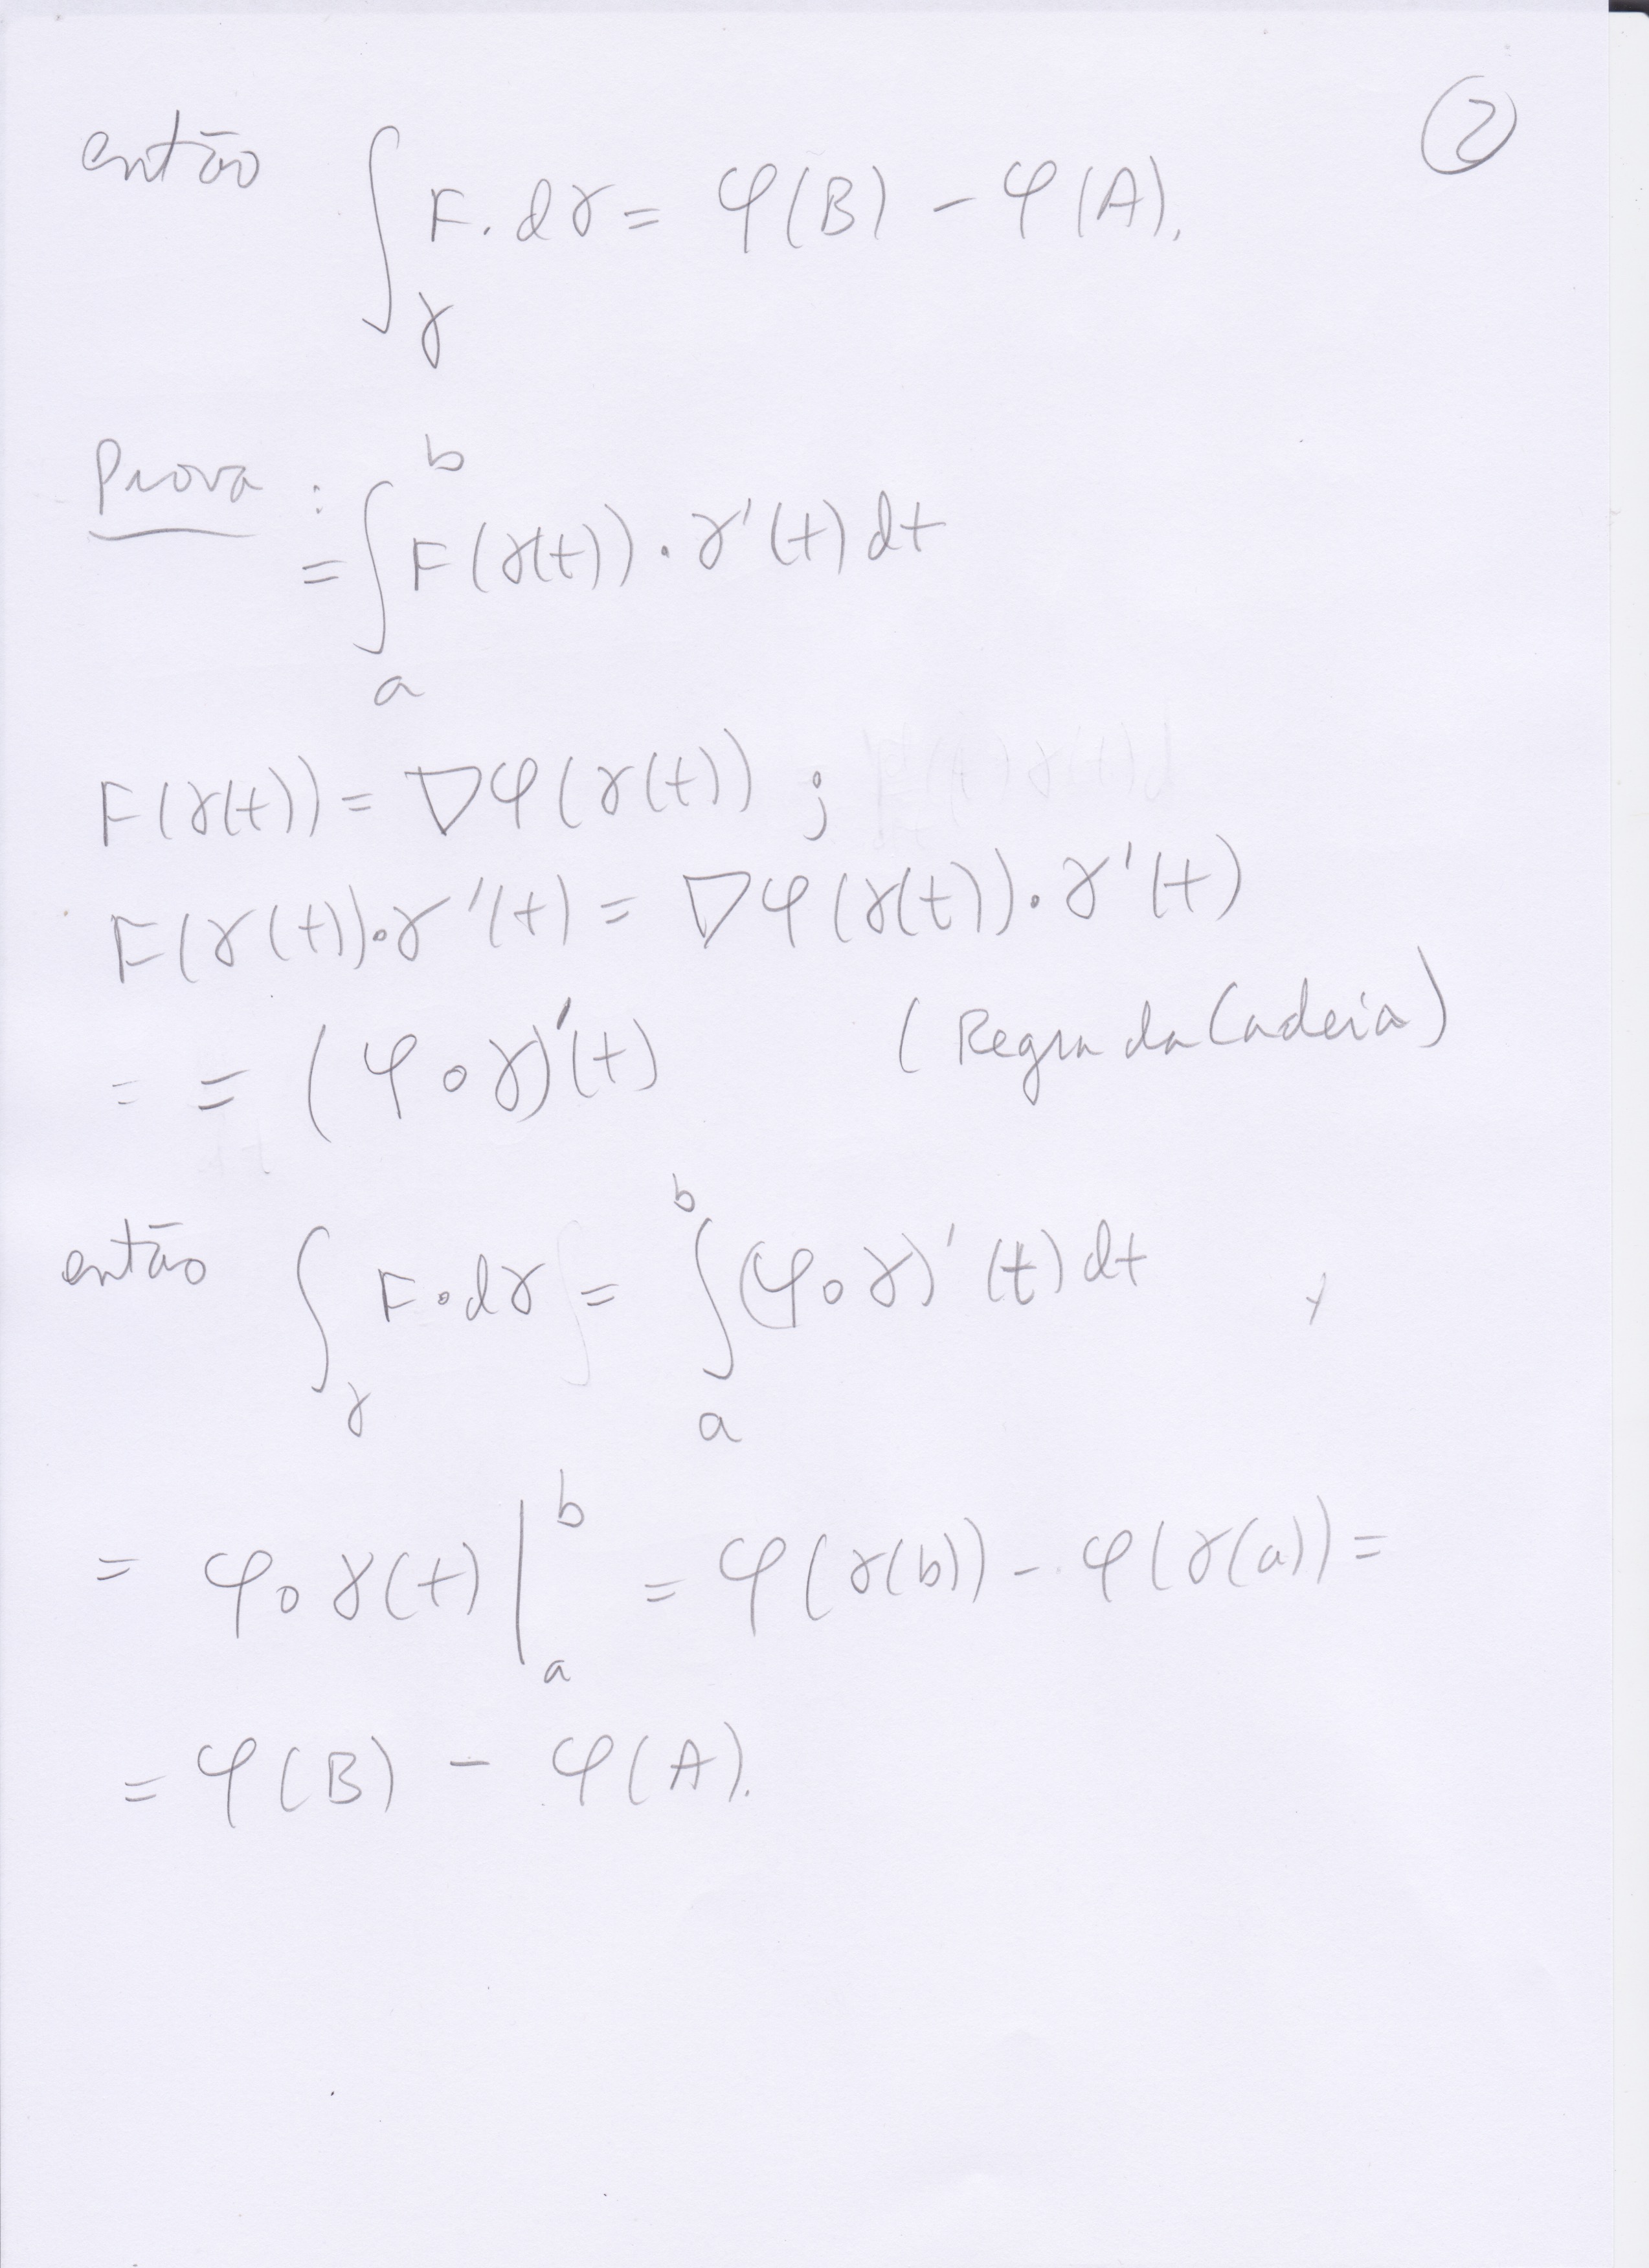 ②
então ∫_γ F. dγ = φ(B) - φ(A).
Prova :
= ∫_a^b F(γ(t)) · γ'(t) dt
F(γ(t)) = ∇φ(γ(t)) ;
F(γ(t)) · γ'(t) = ∇φ(γ(t)) · γ'(t)
= = (φ∘γ)'(t) (Regra da Cadeia)
então ∫_γ F · dγ = ∫_a^b (φ∘γ)'(t) dt
= φ∘γ(t) |_a^b = φ(γ(b)) - φ(γ(a)) =
= φ(B) - φ(A).